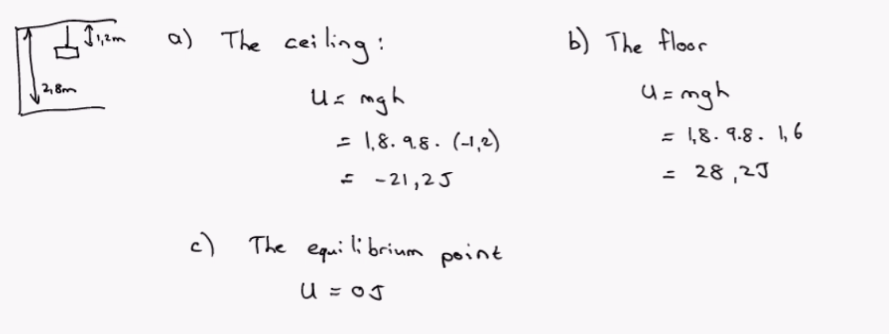 1,2m
2,8m
a) The ceiling:
U = mgh
= 1,8. 9.8. (-1,2)
= -21,2J
b) The floor
U = mgh
= 1,8. 9.8. 1,6
= 28,2J
c) The equilibrium point
U = 0J